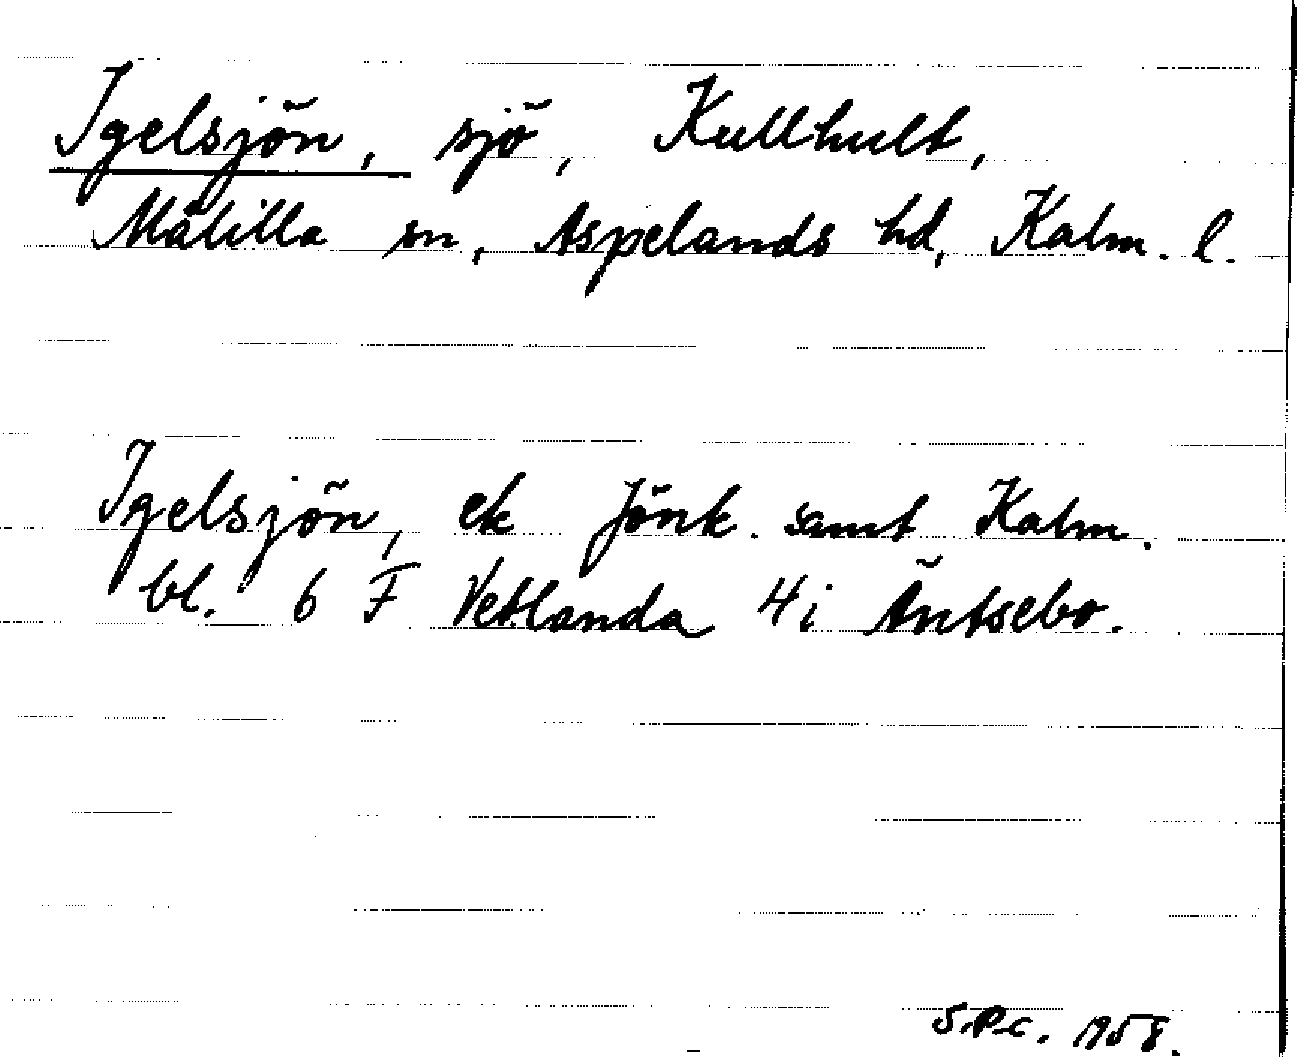 Igelsjön, sjö, Kullhult,
Målilla sn, Aspelands hd, Kalm. l.
Igelsjön, ek Jönk. samt Kalm.
bl. 6 F Vetlanda 4i Äntsebo.
S.P.C. 1958.